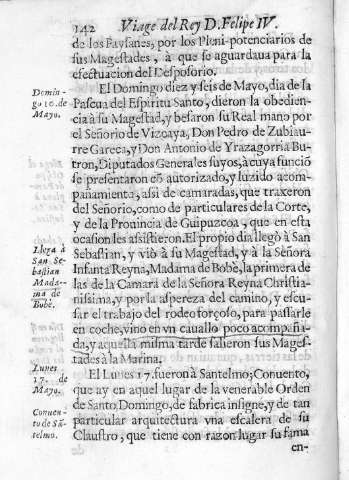 142 Viage del Rey D. Felipe IV.
de los Paysanes, por los Pleni-potenciarios de
sus Magestades, à que se aguardaua para la
efectuacion del Desposorio.
Domin-
go 16. de
Mayo.
El Domingo diez y seis de Mayo, dia de la
Pascua del Espiritu Santo, dieron la obedien-
cia à su Magestad, y besaron su Real mano por
el Señorio de Vizcaya, Don Pedro de Zubiau-
rre Gareca, y Don Antonio de Yrazagorria Bu-
tron, Diputados Generales suyos, à cuya funciõ
se presentaron cõ autorizado, y luzido acom-
pañamiento, assi de camaradas, que traxeron
del Señorio, como de particulares de la Corte,
y de la Prouincia de Guipuzcoa, que en esta
ocasion les assistieron. El propio dia llegò à San
Llega à
San Se-
bastian
Mada-
ma de
Bobè.
Sebastian, y viò à su Magestad, y à la Señora
Infanta Reyna, Madama de Bobè, la primera de
las de la Camara de la Señora Reyna Christia-
nissima, y por la aspereza del camino, y escu-
sar el trabajo del rodeo forçoso, para passarle
en coche, vino en vn cauallo poco acompaña-
da, y aquella misma tarde salieron sus Mages-
tades à la Marina.
Lunes
17. de
Mayo.
El Lunes 17. fueron à Santelmo; Conuento,
que ay en aquel lugar de la venerable Orden
de Santo Domingo, de fabrica insigne, y de tan
Conuen-
to de Sã-
telmo.
particular arquitectura vna escalera de su
Claustro, que tiene con razon lugar su fama
en-